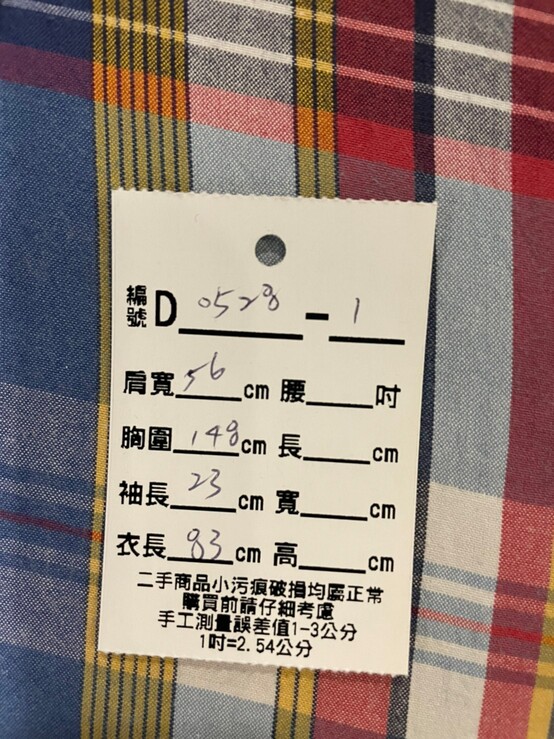 編號D 0528 - 1
肩寬 56 cm 腰____吋
胸圍 148 cm 長____cm
袖長 23 cm 寬____cm
衣長 83 cm 高____cm
二手商品小污痕破損均屬正常
購買前請仔細考慮
手工測量誤差值1-3公分
1吋=2.54公分